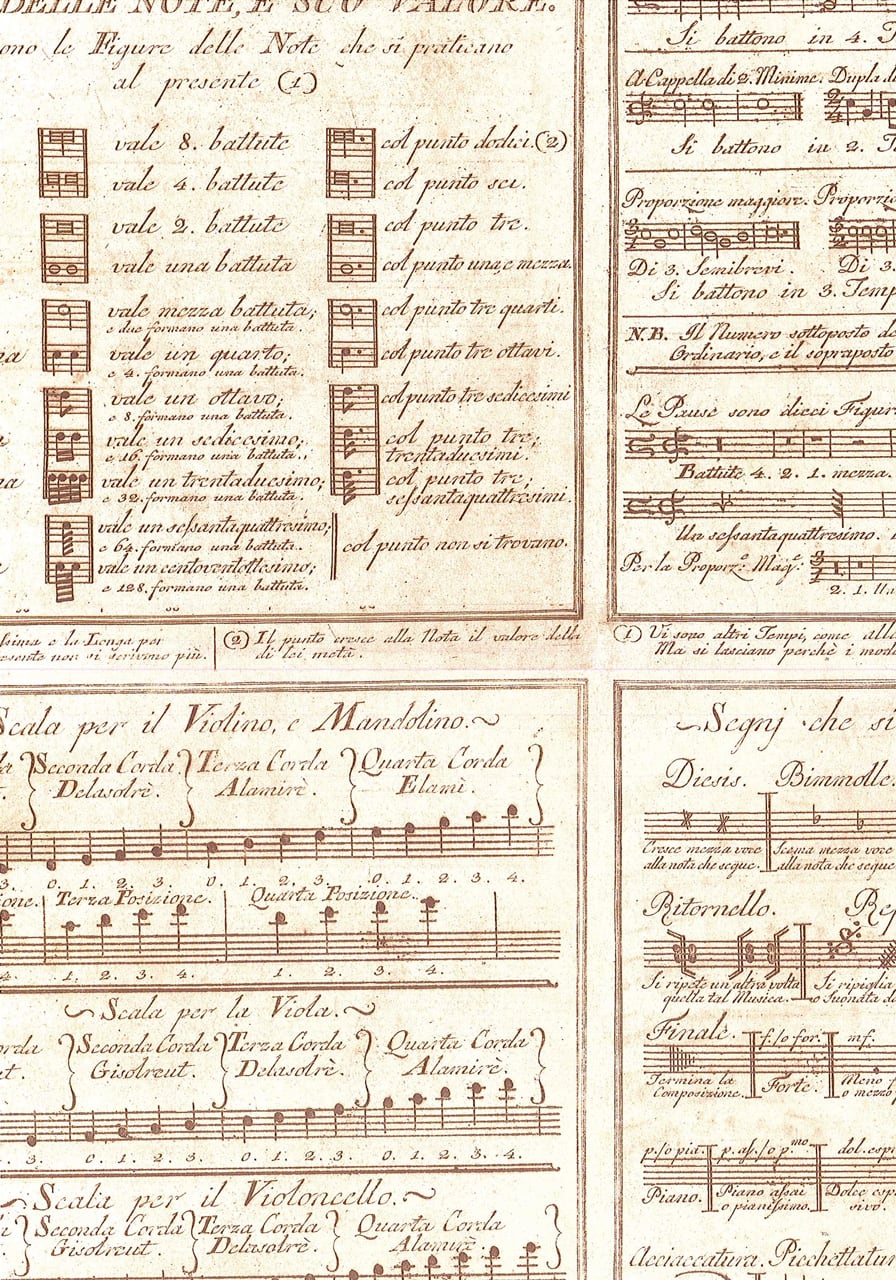 DELLE NOTE, E SUO VALORE.
ono le Figure delle Note che si praticano
al presente (1)
vale 8. battute
col punto dodici. (2)
vale 4. battute
col punto sei.
vale 2. battute
col punto tre.
vale una battuta
col punto una, e mezza.
vale mezza battuta;
e due formano una battuta.
col punto tre quarti.
vale un quarto;
e 4. formano una battuta.
col punto tre ottavi.
vale un ottavo;
e 8. formano una battuta.
col punto tre sedicesimi
vale un sedicesimo;
e 16. formano una battuta.
col punto tre;
trentaduesimi.
vale un trentaduesimo;
e 32. formano una battuta.
col punto tre;
sessantaquattresimi.
vale un sessantaquattresimo;
e 64. formano una battuta.
vale un centoventottesimo;
e 128. formano una battuta.
col punto non si trovano.
ssima e la Longa per
esente non si scrivono più.
(2) Il punto cresce alla Nota il valore della
di lei metà.
Si battono in 4. T
A Cappella di 2. Minime. Dupla di
Si battono in 2. T
Proporzione maggiore. Proporzio
Di 3. Semibrevi. Di 3.
Si battono in 3. Temp
N.B. Il Numero sottoposto de
Ordinario, e il sopraposto
Le Pause sono dieci Figur
Battute 4. 2. 1. mezza.
Un sessantaquattresimo.
Per la Proporz.e Mag.e
2. 1. Un
(1) Vi sono altri Tempi, come alle
Ma si lasciano perchè i mod
Scala per il Violino, e Mandolino.
Seconda Corda Terza Corda Quarta Corda
Delasolrè. Alamirè. Elamì.
3. 0. 1. 2. 3. 0. 1. 2. 3. 0. 1. 2. 3. 4.
one. Terza Posizione. Quarta Posizione.
4. 1. 2. 3. 4. 1. 2. 3. 4.
Scala per la Viola.
orda Seconda Corda Terza Corda Quarta Corda
ut. Gisolreut. Delasolrè. Alamirè.
3. 0. 1. 2. 3. 0. 1. 2. 3. 0. 1. 2. 3. 4.
Scala per il Violoncello.
Seconda Corda Terza Corda Quarta Corda
Gisolreut. Delasolrè. Alamirè.
Segnj che si
Diesis. Bimmolle.
Cresce mezza voce
alla nota che segue.
Scema mezza voce
alla nota che segue
Ritornello. Rep
Si ripete un'altra volta
quella tal Musica.
Si ripiglia
o Suonata da
Finale. f. / o for. mf.
Termina la
Composizione.
Forte.
Meno f
o mezzo
p. / o pia. p. as. / o p.mo dol. espr
Piano.
Piano assai
o pianissimo.
Dolce esp
sivo.
Acciaccatura. Picchettatur